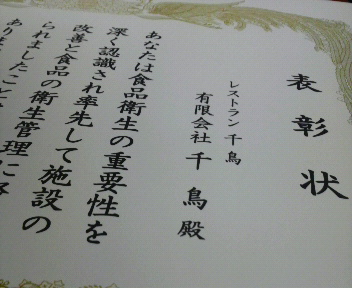 表彰状
レストラン千鳥
有限会社千鳥殿
あなたは食品衛生の重要性を
深く認識され率先して施設の
改善と食品の衛生管理に
られましたことは
あり